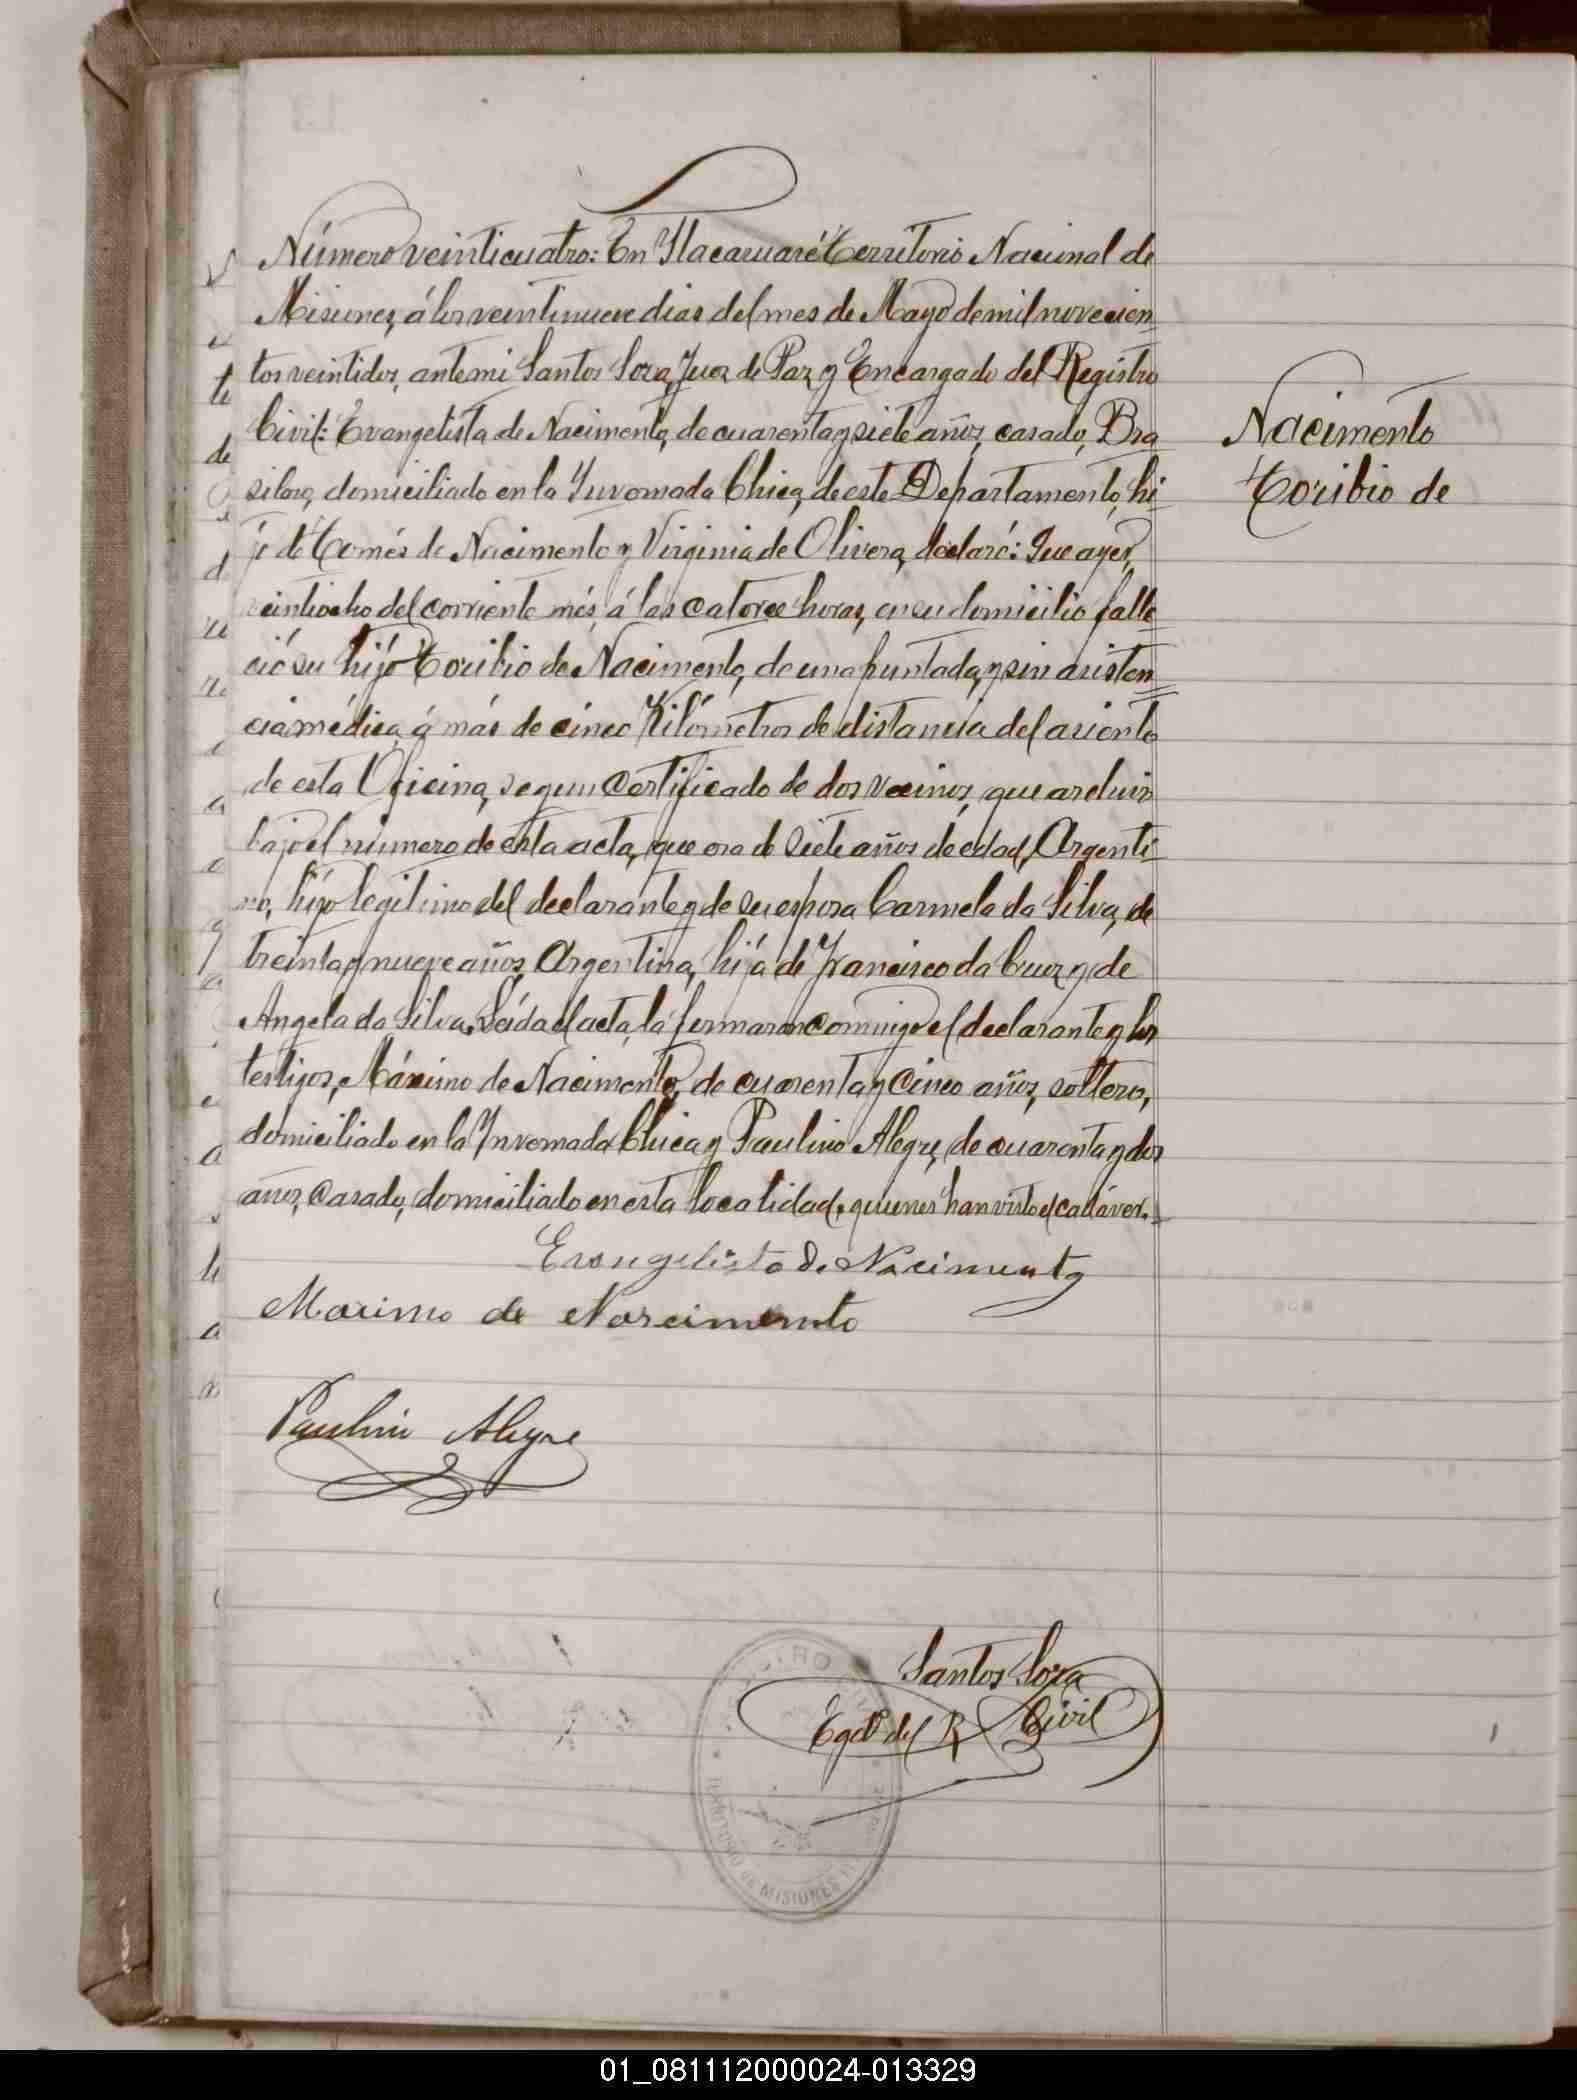 Número veinticuatro: En Itacaruaré Territorio Nacional de
Misiones, á los veintinueve dias del mes de Mayo de mil novecien-
tos veintidos, ante mi Santos Soza, Juez de Paz y Encargado del Registro
Civil: Evangelista de Nacimento, de cuarenta y siete años, casado, Bra
silero, domiciliado en la Invernada Chica, de este Departamento, hi-
jo de Tomés de Nacimento y Virginia de Olivera, declaró: Que ayer,
veintiocho del corriente més, á las catorce horas, en su domicilio falle-
ció su hijo Toribio de Nacimento, de una puntada, y sin asisten-
cia médica, á más de cinco Kilómetros de distancia del asiento
de esta Oficina, segun certificado de dos vecinos, que archivo
bajo el número de esta acta, que era de siete años de edad, Argenti-
no, hijo legitimo del declarante y de su esposa Carmela da Silva, de
treinta y nueve años, Argentina, hija de Francisco da Cruz y de
Angela da Silva. Leida el acta, la firmaron conmigo el declarante y los
testigos, Máximo de Nacimento, de cuarenta y cinco años, soltero,
domiciliado en la Invernada Chica y Paulino Alegre, de cuarenta y dos
años, casado, domiciliado en esta localidad, quienes han visto el cadáver.
Nacimento
Toribio de
Evangelista de Nacimento
Maximo de Narcimento
Paulino Alegre
Santos Soza
Egdo del R Civil
REGISTRO CIVIL
TERRITORIO DE MISIONES
01_081112000024-013329